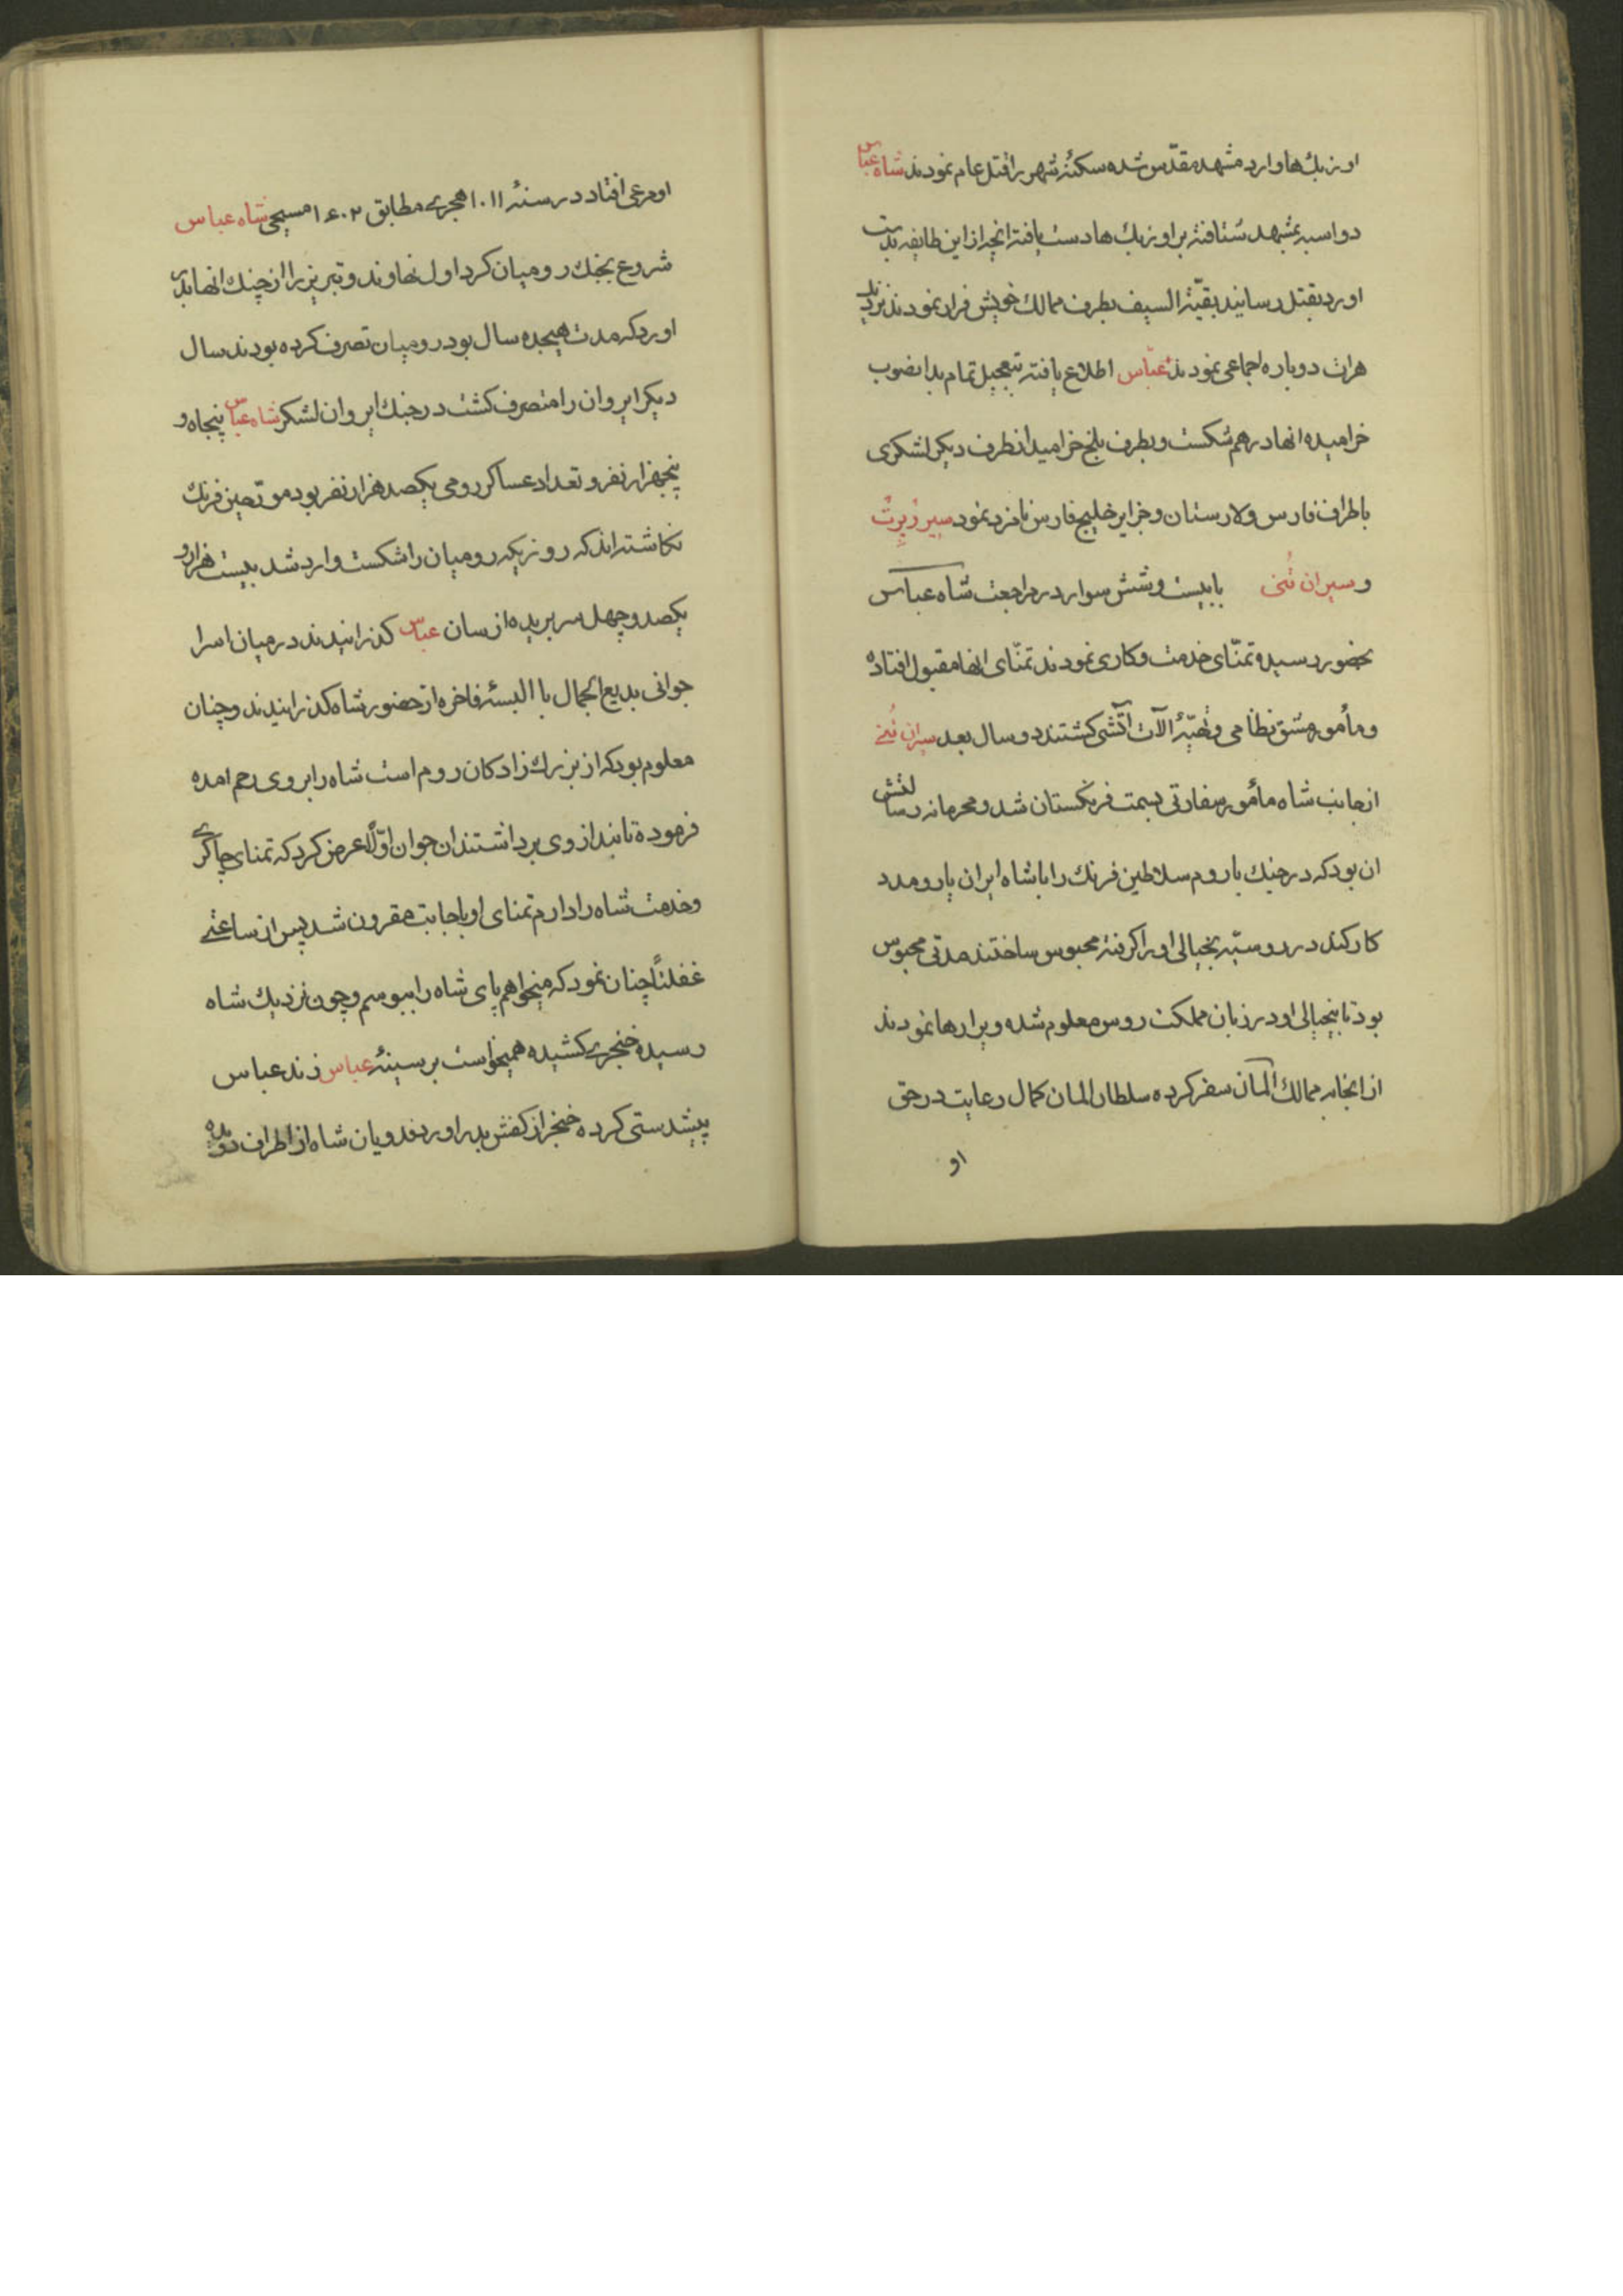 اوزبك‌ها وارد مشهد مقدّس شده سكنهٔ شهر را قتل عام نمودند شاه عباس
دواسبه بمشهد شتافته بر اوزبك‌ها دست يافته انچه از اين طايفه بدست
اورد بقتل رسانيد بقيّة السيف بطرف ممالك خويش فرار نمودند نزديك
هرات دوباره اجماعی نمودند عبّاس اطلاع يافته بتعجيل تمام بدانصوب
خراميده انها درهم شكست و بطرف بلخ خراميد از طرف ديكر لشكری
باطراف فارس و لارستان و جزاير خليج فارس نامزد نمود سير رُبِرتْ
و سيران تُنی با بيست و شش سوار در مراجعت شاه عباس
بحضور رسيده تمنّای خدمت و كاری نمودند تمنّای انها مقبول افتاده
و مأمور مشق نظامی و تهيّهٔ آلات آتشی كشتند دو سال بعد سيران تُنے
از جانب شاه مأمور سفارتی بسمت فرنكستان شد و محرمانه رسالتش
ان بود كه در جنك با روم سلاطين فرنك را با شاه ايران يار و مدد
كار كند در روسيّه بخيالی او را كرفته محبوس ساختند مدتی محبوس
بود تا بيخيالی او در زبان مملكت روس معلوم شده ويرا رها نمودند
از انجا به ممالك آلمان سفر كرده سلطان المان كمال رعايت در حق
او
او مرعی افتاد در سنهٔ ۱۰۱۱ هجرے مطابق ۱۶۰۲ مسيحی شاه عباس
شروع بجنك روميان كرد اول نهاوند و تبريز را از چنك انها بدر
اورد كه مدت هيجده سال بود روميان تصرف كرده بودند سال
ديكر ايروان را متصرف كشت در جنك ايروان لشكر شاه عباس پنجاه و
پنجهزار نفر و تعداد عساكر رومی يكصد هزار نفر بود مورّخين فرنك
نكاشته‌اند كه روزيكه روميان را شكست وارد شد بيست هزار و
يكصد و چهل سر بريده از سان عباس كذرانيدند در ميان اسرا
جوانی بديع الجمال با البسهٔ فاخره از حضور شاه كذرانيدند و چنان
معلوم بود كه از بزرك زادكان روم است شاه را بر وی رحم امده
فرموده تا بند از وی برداشتند ان جوان اوّلا عرض كرد كه تمنای چاكرے
و خدمت شاه را دارم تمنای او باجابت مقرون شد پس از ساعتے
غفلتاً چنان نمود كه ميخواهم پای شاه را ببوسم و چون نزديك شاه
رسيده خنجرے كشيده هميخواست بر سينهٔ عباس زند عباس
پيشدستی كرده خنجر از كفش بدر اورد فدويان شاه از اطراف دويده